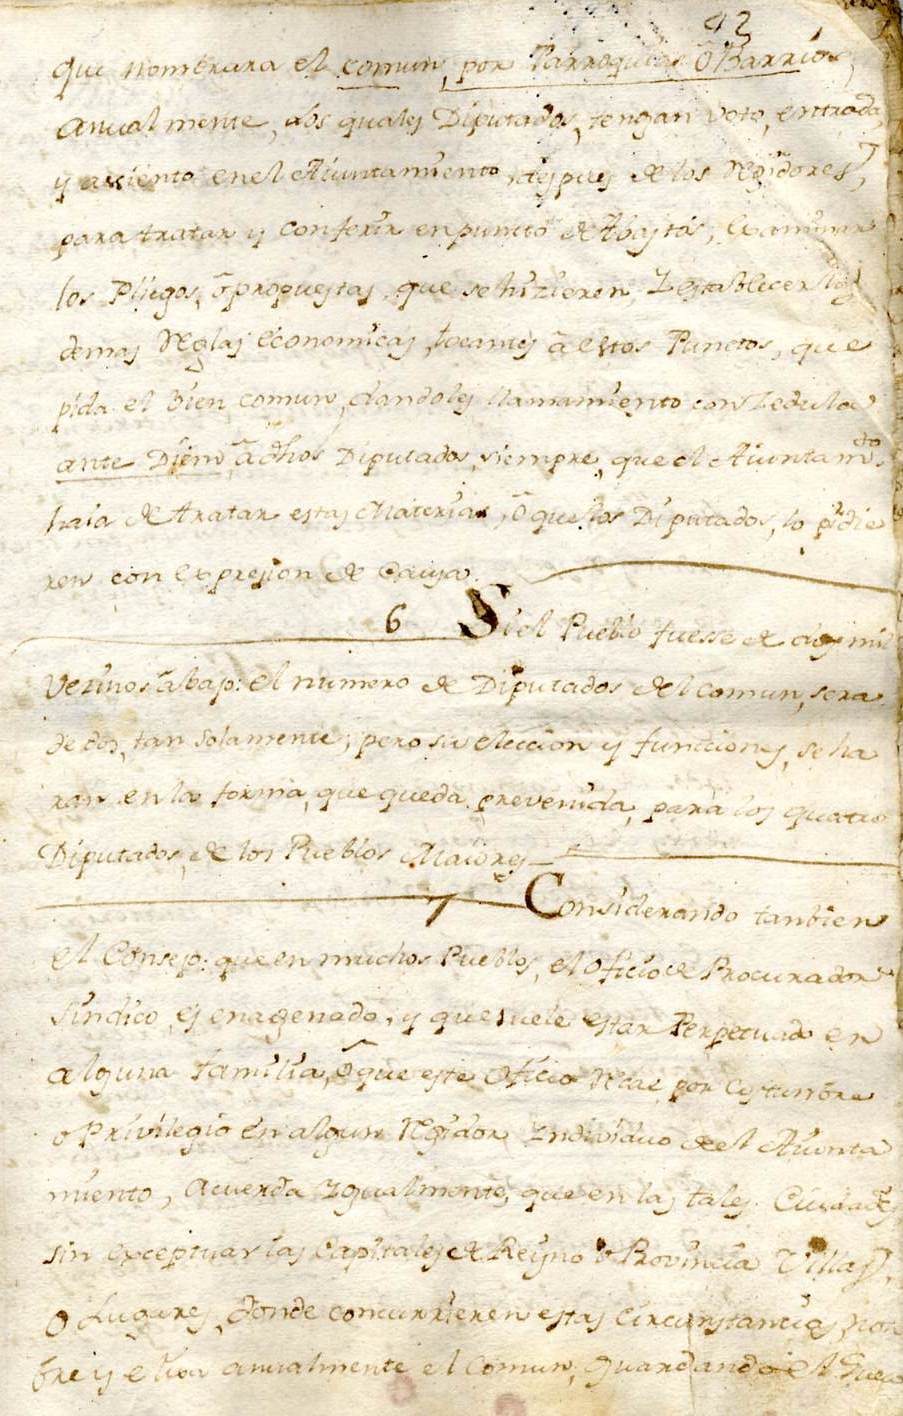 42
que nombrara el comun, por Parroquias ô Barrios,
anualmente, los quales Diputados, tengan voto, entrada,
y assiento en el Aiuntamiento, despues de los Regidores,
para tratar y conferir en puncto de Abastos, Examinar
los Pliegos, ô propuestas, que se hizieren, Y establecer las
demas Reglas economicas, tocantes â estos Punctos, que
pida el bien comun, dandoles llamamiento con Zedula
ante Diem â dhos Diputados, siempre, que el Aiuntamto.
haia de tratar estas Materias, ô que los Diputados, lo pidie
ren con expresion de Causa.
6 Si el Pueblo fuesse de dos mil
Vezinos âbajo: el numero de Diputados del comun, sera
de dos, tan solamente; pero su eleccion y funciones, se ha
ran en la forma, que queda prevenida, para los quatro
Diputados, de los Pueblos Maiores
7 Considerando tanbien
el Consejo: que en muchos Pueblos, el oficio de Procurador
Sindico, es enagenado, y que suele estar Perpetuado en
alguna familia, ô que este oficio Recae por Costunbre
o Privilegio en algun Regidor Yndividuo de el Aiunta
miento, acuerda Ygualmente, que en las tales Ciudades
sin exceptuar las Capitales de Reyno o Provincia Villas,
O Lugares, donde concurrieren estas circunstancias, non
bre y elija anualmente el Comun, guardando el Hueco